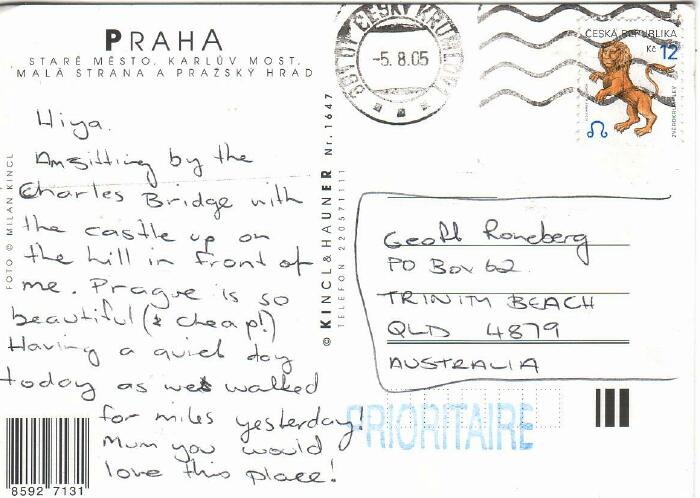 PRAHA
STARÉ MĚSTO, KARLŮV MOST,
MALÁ STRANA A PRAŽSKÝ HRAD
Hiya.
Am sitting by the
Charles Bridge with
the castle up on
the hill in front of
me. Prague is so
beautiful (& cheap!)
Having a quiet day
today as we walked
for miles yesterday!
Mum you would
love this place!
FOTO © MILAN KINCL
8592 7131
© KINCL & HAUNER Nr. 1647
TELEFON 220571111
ČESKÝ KRUMLOV
-5.8.05
ČESKÁ REPUBLIKA
Kč 12
Geoff Roneberg
PO BOX 62
TRINITY BEACH
QLD 4879
AUSTRALIA
PRIORITAIRE